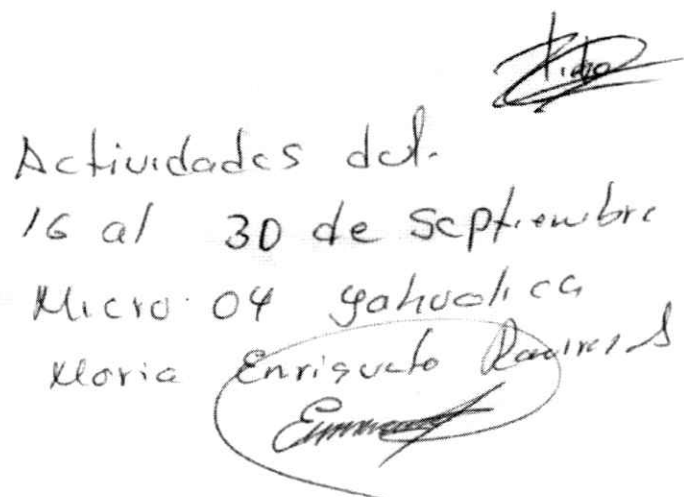 Actividades del.
16 al 30 de septiembre
Micro 04 Yahualica
Maria Enriqueta Ramirez S